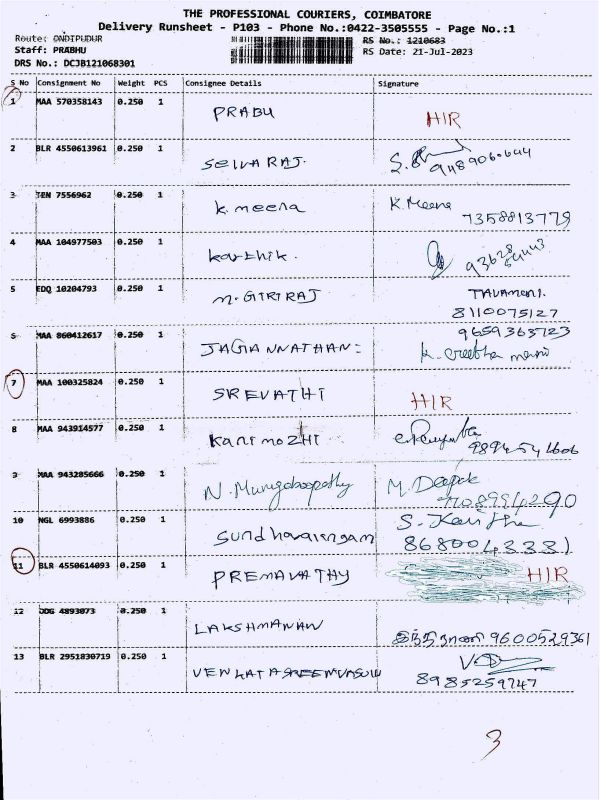 THE PROFESSIONAL COURIERS, COIMBATORE
Delivery Runsheet - P103 - Phone No.:0422-3505555 - Page No.:1
Route: ONDIPUDUR RS No.: 1210683
Staff: PRABHU RS Date: 21-Jul-2023
DRS No.: DCJB121068301
S No Consignment No Weight PCS Consignee Details Signature
1 MAA 570358143 0.250 1 PRABU HIR
2 BLR 4550613961 0.250 1 SELVARAJ. 9489060644
3 TEN 7556962 0.250 1 K. meena K. Meena
7358813779
4 MAA 104977503 0.250 1 karthik. 93628
54443
5 EDQ 10204793 0.250 1 M. GIRIRAJ TAVAMANI.
8110075127
6 MAA 860412617 0.250 1 JAGANNATHAN: 9659365723
7 MAA 100325824 0.250 1 SREVATHI HIR
8 MAA 943914577 0.250 1 KANIMOZHI 9894541606
9 MAA 943285666 0.250 1 N. Murugaboopathy M. Deepak
7708994290
10 NGL 6993886 0.250 1 Sundhararengam S. Kavitha
8680043331
11 BLR 4550614093 0.250 1 PREMAVATHY HIR
12 DDG 4893073 0.250 1 LAKSHMANAN இந்திராணி 9600529361
13 BLR 2951830719 0.250 1 VENKATASREENIVASULU
8985259747
3